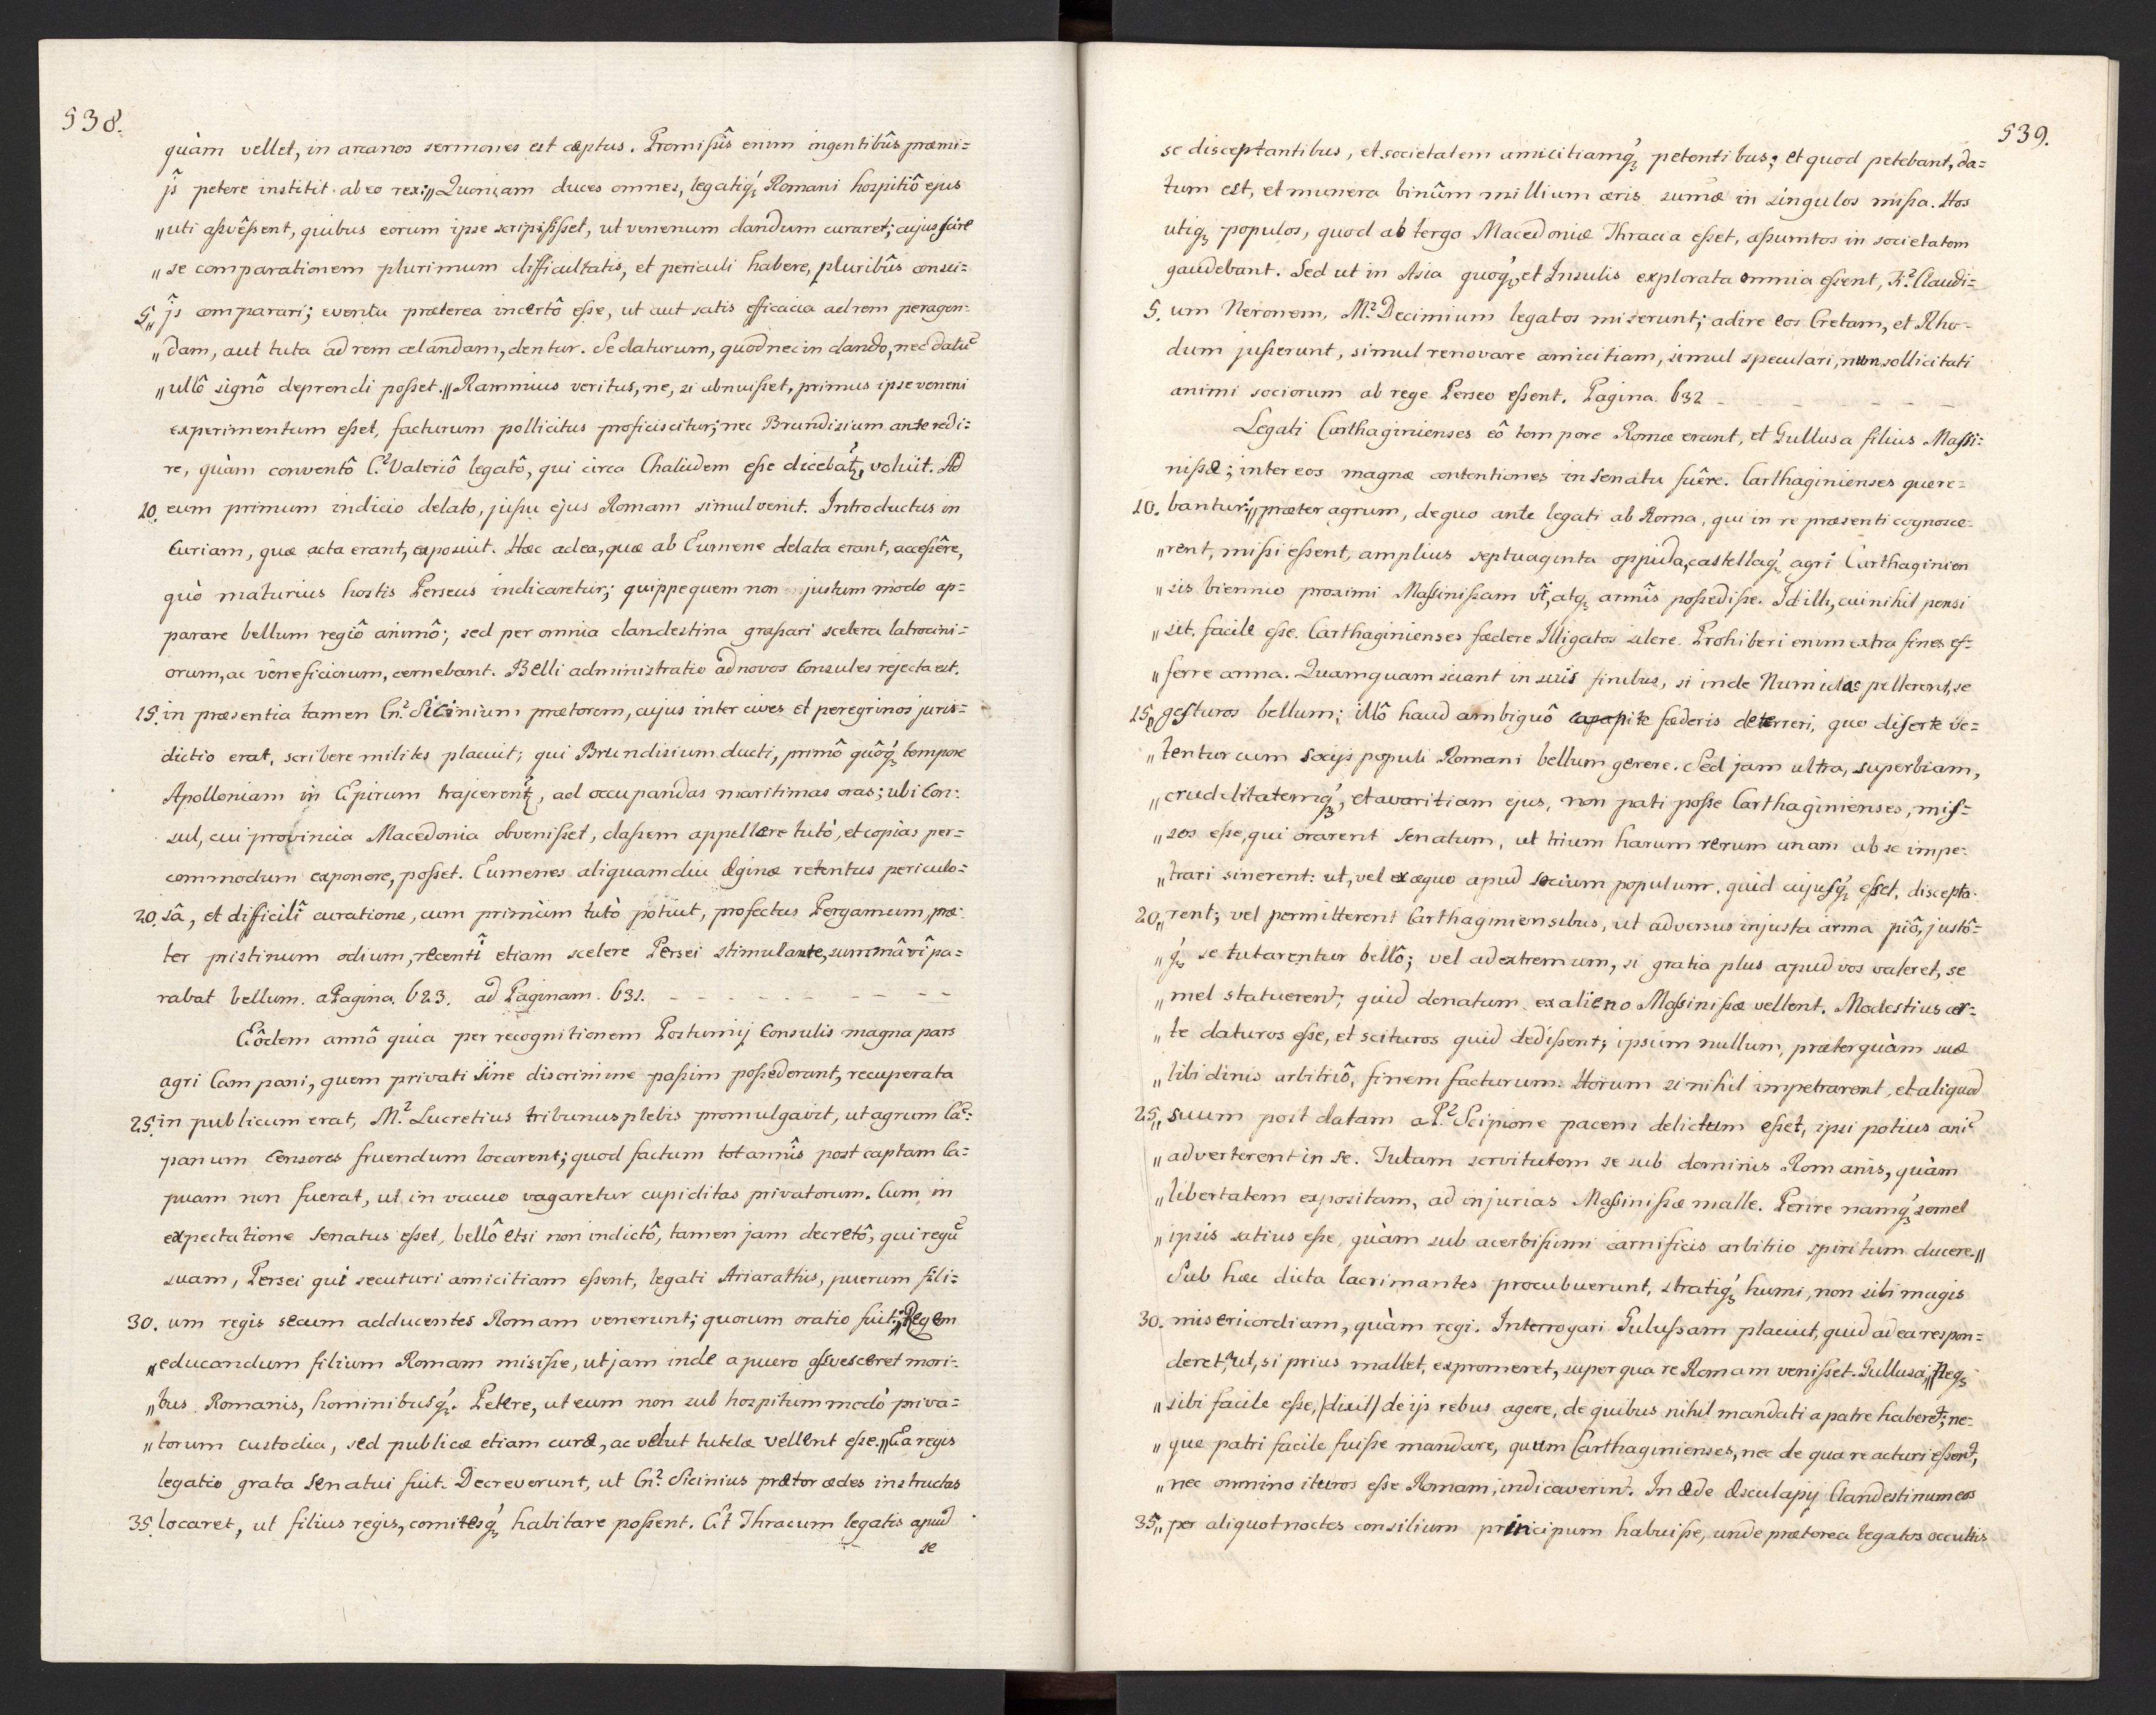 538.
quàm vellet, in arcanos sermones est cæptus. Promissîs enim ingentibûs præmi=
ĵs petere institit ab eo rex: „Quoniam duces omnes, legatiq́ꝫ Romani hospitiô ejus
„uti assvêssent, quibus eorum ipse scripsisset, ut venenum dandum curaret; cujus scire
„se comparationem plurimum difficultatis, et periculi habere, pluribûs consci=
5. „ĵs comparari; eventu præterea incertô esse, ut aut satis efficacia ad rem peragen=
„dam, aut tuta ad rem celandam, dentur. Se daturum, quod nec in dando, nec datū
„ullô signô deprendi posset.„ Rammius veritus, ne, si abnuisset, primus ipse veneni
experimentum esset, facturum pollicitus proficiscitur; nec Brundisium ante redi=
re, quàm conventô C.² Valeriô legatô, qui circa Chalcidem esse dicebat́ꝫ, voluit. Ad
10. eum primum indicio delato, jussu ejus Romam simul venit. Introductus in
Curiam, quæ acta erant, exposuit. Hæc ad ea, quæ ab Eumene delata erant, accessêre,
quò maturius hostis Perseus indicaretur; quippe quem non justum modo ap=
parare bellum regiô animô; sed per omnia clandestina grassari scelera latrocini=
orum, ac veneficiorum, cernebant. Belli administratio ad novos Consules rejecta est.
15. in præsentia tamen Cn.² Sicinium prætorem, cujus inter cives et peregrinos juris=
dictio erat, scribere milites placuit; qui Brundisium ducti, primô quôq́ꝫ tempore
Apolloniam in Epirum trajicerent́ꝫ, ad occupandas maritimas oras; ubi Con=
sul, cui provincia Macedonia obvenisset, classem appellere tutò, et copias per=
commodum exponere, posset. Eumenes aliquamdiu Æginæ retentus periculo=
20. sâ, et difficilî curatione, cum primùm tutò potuit, profectus Pergamum, præ=
ter pristinum odium, recentî etiam scelere Persei stimulante, summâ vî pa=
rabat bellum. a Pagina. 623. ad Paginam. 631. - - - - - - - - -
Eôdem annô quia per recognitionem Postumij Consulis magna pars
agri Campani, quem privati sine discrimine passim possederant, recuperata
25. in publicum erat, M.² Lucretius tribunus plebis promulgavit, ut agrum Cā=
panum Censores fruendum locarent; quod factum tot annîs post captam Ca=
puam non fuerat, ut in vacuo vagaretur cupiditas privatorum. Cum in
expectatione Senatus esset, bellô etsi non indictô, tamen jam decretô, qui regū
suam, Persei qui secuturi amicitiam essent, legati Ariarathis, puerum fili=
30. um regis secum adducentes Romam venerunt; quorum oratio fuit: „Regem
„educandum filium Romam misisse, ut jam inde a puero assvesceret mori=
„bus Romanis, hominibusq́ꝫ. Petere, ut eum non sub hospitum modò priva=
„torum custodia, sed publicæ etiam curæ, ac velut tutelæ vellent esse.„ Ea regis
legatio grata Senatui fuit. Decreverunt, ut Cn.² Sicinius prætor ædes instructas
35. locaret, ut filius regis, comitesq́ꝫ habitare possent. Et Thracum legatis apud
se
539.
se disceptantibus, et societatem amicitiamq́ꝫ petentibus; et quod petebant, da=
tum est, et munera binûm millium æris sumæ in singulos missa. Hos
utiqꝫ populos, quod ab tergo Macedoniæ Thracia esset, assumtos in societatem
gaudebant. Sed ut in Asia quoq́ꝫ, et Insulis explorata omnia essent, Ti.² Claudi=
5. um Neronem, M.² Decimium legatos miserunt; adire eos Cretam, et Rho=
dum jusserunt, simul renovare amicitiam, simul speculari, num sollicitati
animi sociorum ab rege Perseo essent. Pagina 632 - - - - - -
Legati Carthaginienses eô tempore Romæ erant, et Gullusa filius Massi=
nissæ; inter eos magnæ contentiones in Senatu fuêre. Carthaginienses quere=
10. bantur: „præter agrum, de quo ante legati ab Roma, qui in re præsenti cognosce=
„rent, missi essent, amplius septuaginta oppida, castellaq́ꝫ agri Carthaginien
„sis biennio proximi Massinissam vî, atqꝫ armîs possedisse. Id illi, cui nihil pensi
„sit, facile esse. Carthaginienses fœdere Illigatos silere. Prohiberi enim extra fines ef=
„ferre arma. Quamquam sciant in suis finibus, si inde Numidas pellerent, se
15. „gesturos bellum; illô haud ambiguô capite fœderis deterreri, quo diserte ve=
„tentur cum socijs populi Romani bellum gerere. Sed jam ultra, superbiam,
„crudelitatemq́ꝫ, et avaritiam ejus, non pati posse Carthaginienses, mis=
„sos esse, qui orarent Senatum, ut trium harum rerum unam ab se impe=
„trari sinerent: ut, vel ex æquo apud socium populum, quid cujusq́ꝫ esset, discepta=
20. „rent; vel permitterent Carthaginiensibus, ut adversus injusta arma piô, justô=
„q́ꝫ se tutarentur bellô; vel ad extremum, si gratia plus apud vos valeret, se
„mel statuerent; quid donatum ex alieno Massinissæ vellent. Modestius cer=
„te daturos esse, et scituros quid dedissent; ipsum nullum, præterquàm suæ
„libidinis arbitriô, finem facturum. Horum si nihil impetrarent, et aliquod
25. „suum post datam a P.² Scipione pacem delictum esset, ipsi potius anī
„adverterent in se. Tutam servitutem se sub dominis Romanis, quàm
„libertatem expositam, ad injurias Massinissæ malle. Perire namq́ꝫ semel
„ipsis satius esse, quàm sub acerbissimi carnificis arbitrio spiritum ducere.„
Sub hæc dicta lacrimantes procubuerunt, stratiq́ꝫ humi, non sibi magis
30. misericordiam, quàm regi. Interrogari Gulussam placuit, quid ad ea respon=
deret, aut, si prius mallet, expromeret, super qua re Romam venisset. Gullusa; „Neqꝫ
„sibi facile esse, /dixit/ de ijs rebus agere, de quibus nihil mandati a patre haberet; ne=
„que patri facile fuisse mandare, quum Carthaginienses, nec de qua re acturi essent,
„nec omnino ituros esse Romam, indicaverint. In æde Æsculapij Clandestinum eos
35. „per aliquot noctes consilium principum habuisse, unde præterea legatos occultis